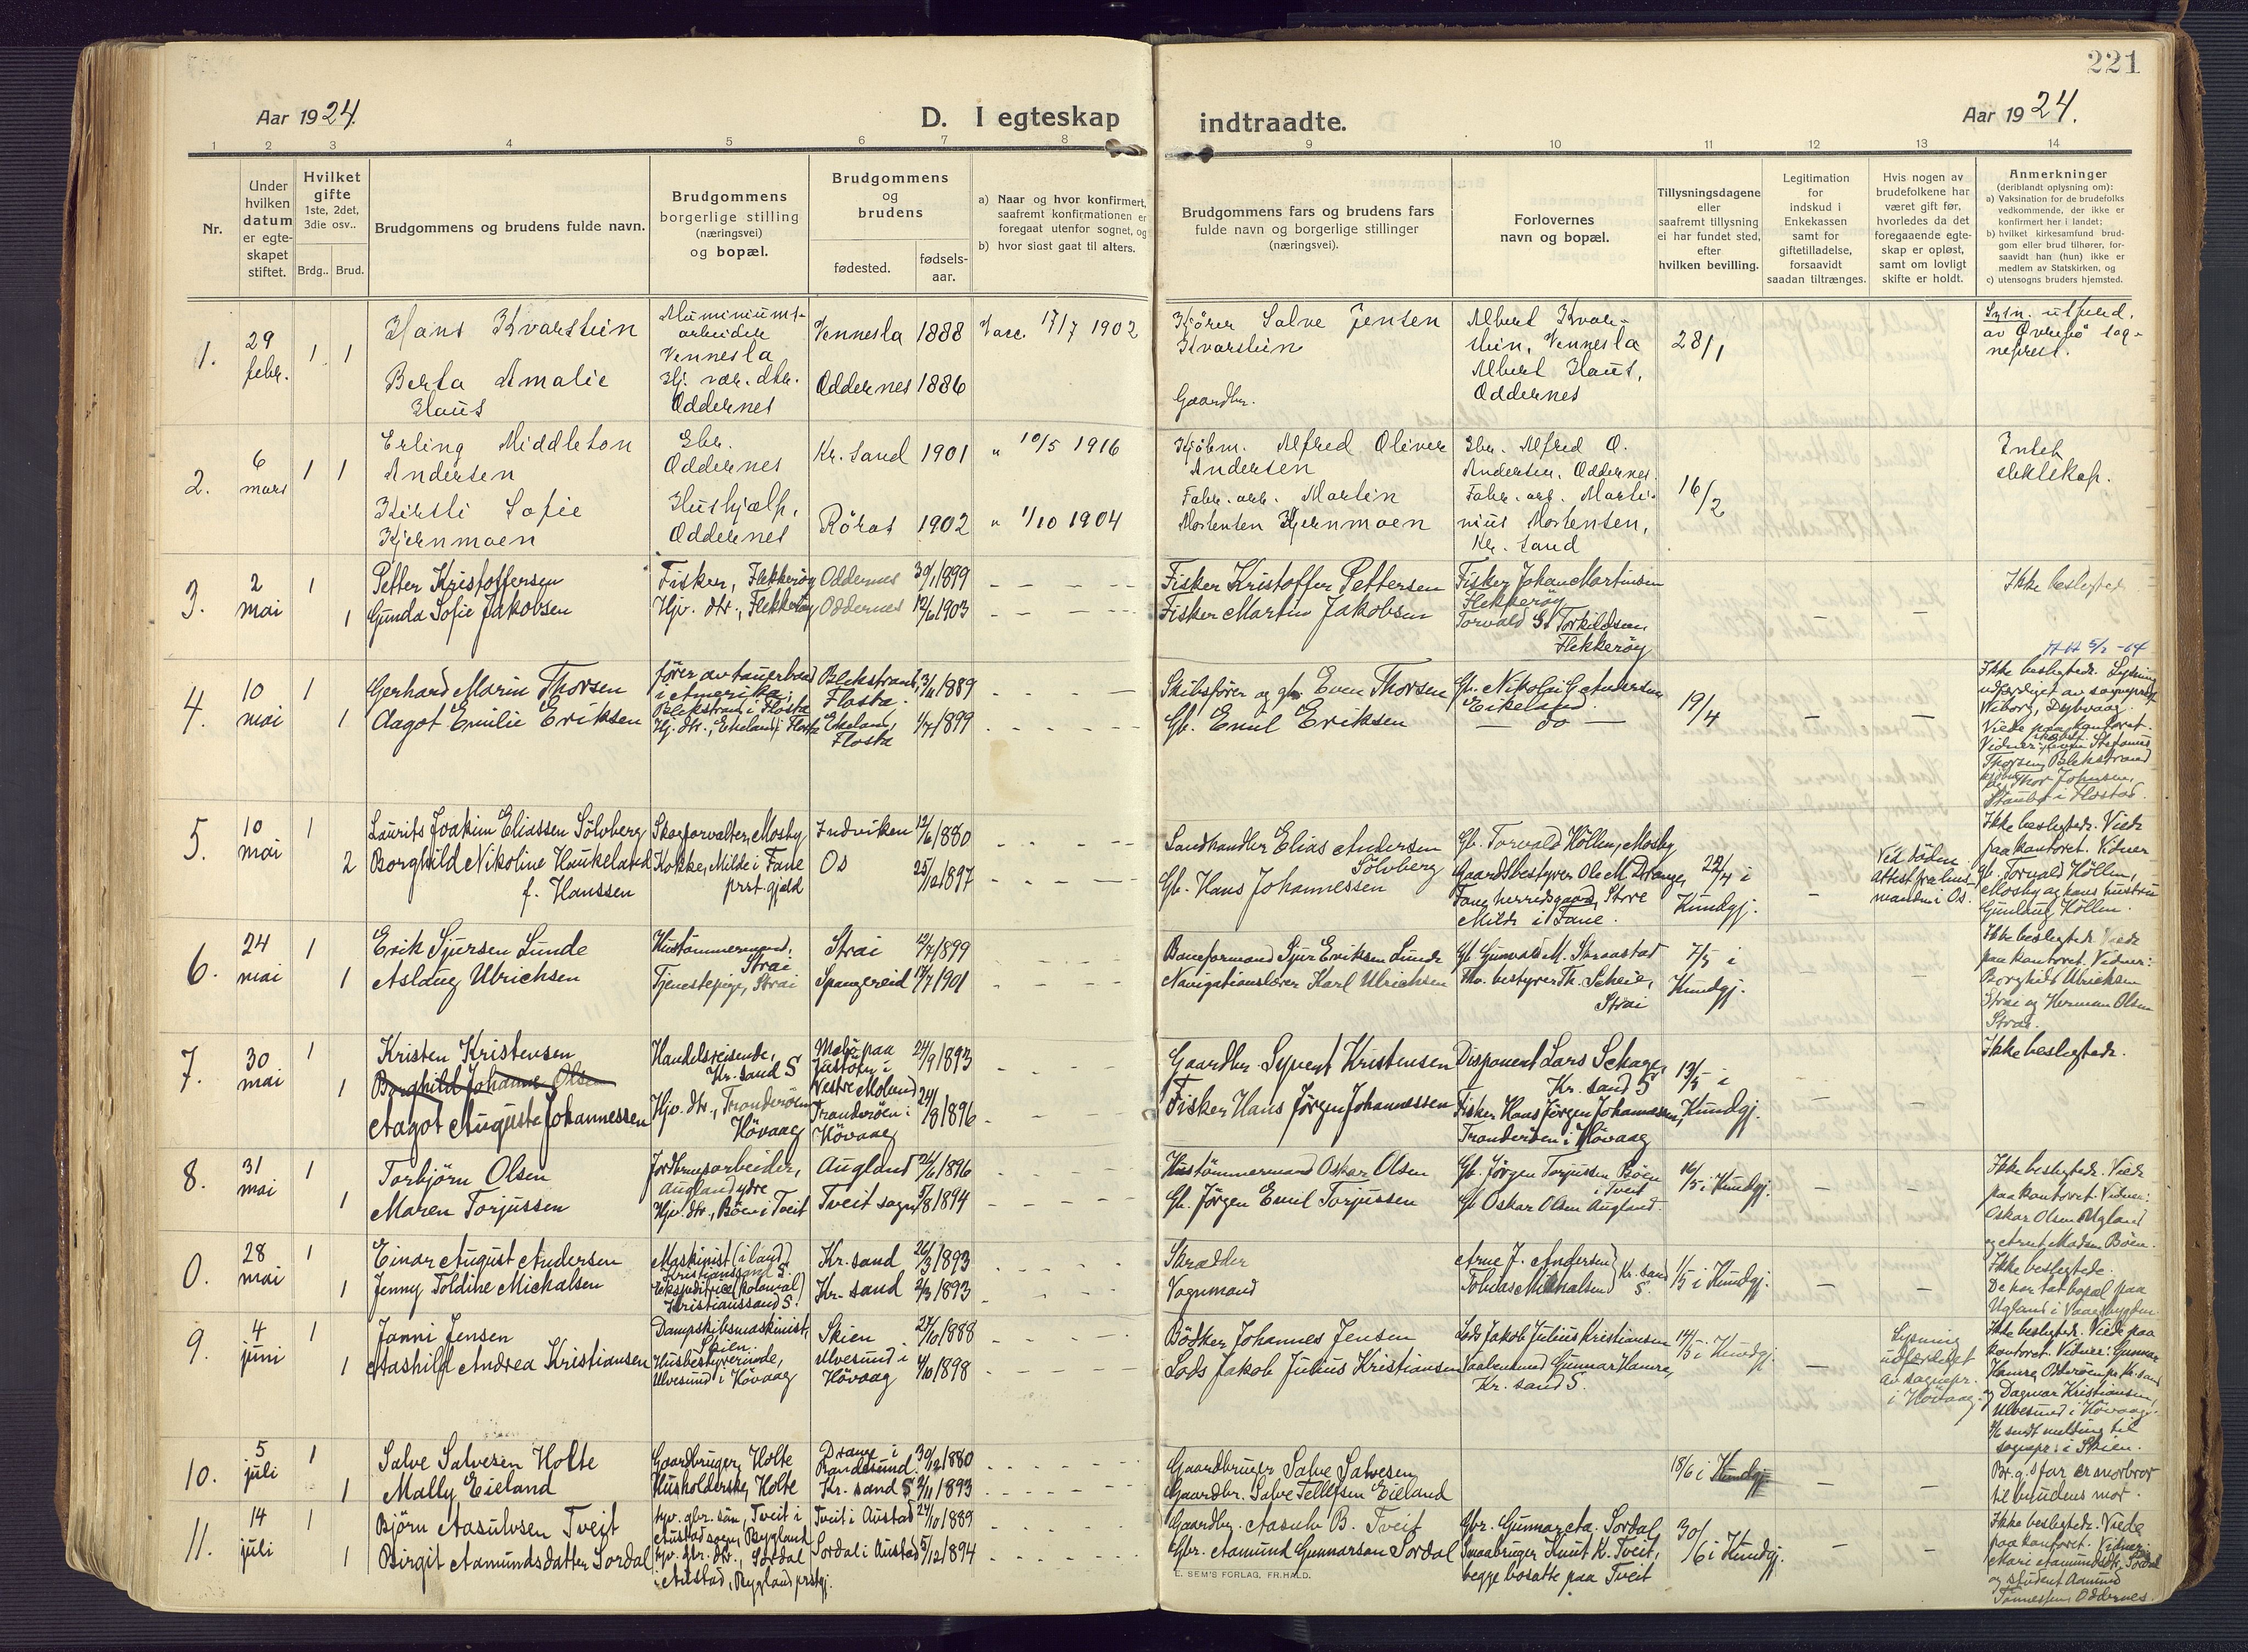 221
Aar 1924.
D. I egteskap
indtraadte.
Aar 1924.
1 2 3 4 5 6 7 8 9 10 11 12 13 14
Nr.
Under hvilken datum er egteskapet stiftet.
Hvilket gifte 1ste, 2det, 3die osv..
Brdg.. Brud.
Brudgommens og brudens fulde navn.
Brudgommens borgerlige stilling (næringsvei) og bopæl.
Brudgommens og brudens
fødested.
fødsels-aar.
a) Naar og hvor konfirmert, saafremt konfirmationen er foregaat utenfor sognet, og
b) hvor sidst gaat til alters.
Brudgommens fars og brudens fars fulde navn og borgerlige stillinger (næringsvei).
Forlovernes navn og bopæl.
Tillysningsdagene eller saafremt tillysning ei har fundet sted, efter hvilken bevilling.
Legitimation for indskud i Enkekassen samt for giftetilladelse, forsaavidt saadan tiltrænges.
Hvis nogen av brudefolkene har været gift før, hvorledes da det foregaaende egteskap er opløst, samt om lovligt skifte er holdt.
Anmerkninger
(deriblandt oplysning om):
a) Vaksination for de brudefolks vedkommende, der ikke er konfirmert her i landet;
b) hvilket kirkesamfund brudgom eller brud tilhører, forsaavidt han (hun) ikke er medlem av Statskirken, og
c) utensogns bruders hjemsted.
1. 29 febr. 1 1
Hans Kvarstein
Aluminiumsarbeider Vennesla
Vennesla 1888
17/7 1902
Kjører Salve Jensen Kvarstein
Albert Kvarstein, Vennesla
28/1
Berta Amalie Haus
Oddernes
Oddernes 1886
Gaardbr.
Albert Haus, Oddernes
2. 6 mars 1 1
Erling Middleton Andersen
Gbr. Oddernes
Kr. sand 1901
" 10/5 1916
Kjøbm. Alfred Oliver Andersen
Gbr. Alfred O. Andersen, Oddernes
16/2
Intet slektskap.
Kirsti Sofie Kjernmoen
Hushjælp, Oddernes
Röros 1902
" 1/10 1904
Fabr. arb. Martin Mortensen Kjernmoen
Fabr. arb. Martinius Mortensen, Kr. sand
3. 2 mai 1
Petter Kristoffersen
Fisker, Flekkeröy Oddernes 30/1 1899
Fisker Kristoffer Pettersen
Fisker Johan Martinsen Flekkeröy
Ikke beslegtede
1 Gunda Sofie Jakobsen
Hjv. dtr., Flekkeröy Oddernes 12/6 1903
Fisker Martin Jakobsen
Torvald G. Torkildsen Flekkeröy
4. 10 mai 1
Gerhard Marin Thorsen
fører av tauerbaad i Amerika. Blekstrand i Flosta
Blekstrand, Flosta. 1889
Skibsfører og gbr. Even Thorsen
Gb. Nikolai G. Andersen Eikeland.
19/4
Ikke beslegtede. Lysning utfærdiget av sogneprest Wiborg, Dybvaag. Viede paa kontoret.
1 Aagot Emilie Eriksen
Hj. dtr., Eikeland, Flosta
Eikeland, Flosta 1/7 1899
Gb. Emil Eriksen
— do —
5. 10 mai 1
Laurits Joakim Eliassen Sölvberg
Skogforvalter, Mosby
Indviken 12/6 1880
Landhandler Elias Andersen Sölvberg
Gb. Torvald Höllen, Mosby
22/4 i Kundgj.
Ikke beslegtede. Viede paa kontoret. Vidner Gb. Torvald Höllen, Mosby og hans hustru Gunhild Höllen.
2 Borghild Nikoline Haukeland f. Hanssen
Kokke, Milde i Fane prst. gjeld
Os 25/12 1897
Gb. Hans Johannessen
Gaardsbestyrer Ole M. Drange, Fane herredsgaard, Store Milde i Fane.
Ved döden. Attest fra lensmanden i Os.
6. 24 mai 1
Erik Sjursen Lunde
Hustömmermand, Strai
Strai 12/7 1899
Baneformand Sjur Eriksen Lunde
Gb. Gunvald M. Straastad
7/5 i Kundgj.
Ikke beslegtede. Viede paa kontoret. Vidner: Borghild Ulrichsen Strai og Herman Olsen Strai.
1 Aslaug Ulrichsen
Tjenestepige, Strai
Spangereid 17/7 1901
Navigationslærer Karl Ulrichsen
Th. Scheie, Strai
7. 30 mai 1
Kristen Kristensen
Handelsreisende, Kr. sand S
Malö paa Justöen i Vestre Moland 24/9 1893
Gaardbr. Syvert Kristensen
Disponent Lars Schage, Kr. sand S
13/5 i Kundgj.
Ikke beslegtede.
Borghild Johanne Olsen
1 Aagot Auguste Johannessen
Hjv. dtr., Tronderöen Hövaag
Tronderöen i Hövaag 24/8 1896
Fisker Hans Jörgen Johannessen
Fisker Hans Jörgen Johannessen, Tronderöen i Hövaag
8. 31 mai 1
Torbjörn Olsen
Jordbruksarbeider, Augland ydre
Augland 1896
Hustömmermand Oskar Olsen
Gb. Jörgen Torjussen Böen i Tveit
16/5 i Kundgj.
Ikke beslegtede. Viede paa kontoret. Vidner: Oskar Olsen Augland og Arnt Madsen Böen.
1 Maren Torjussen
Hjv. dtr., Böen i Tveit
Tveit sogn 5/8 1894
Gb. Jörgen Emil Torjussen
Gb Oskar Olsen Augland.
0. 28 mai 1
Einar August Andersen
Maskinist (i land) Kristianssand S.
Kr. sand 26/3 1893
Skrædder
Arne J. Andersen
1/5 i Kundgj.
Ikke beslegtede. De har tat bopæl paa Ugland i Vaagsbygden
1 Jenny Toldine Michalsen
Ekspeditrice (kolonial) Kristianssand S.
Kr. sand 2/3 1893
Vognmand
Tobias Michalsen Kr. sand S.
9. 4 juni 1
Janni Jensen
Dampskibsmaskinist, Skien.
Skien 27/10 1888
Bödker Johannes Jensen
Lods Jakob Julius Kristiansen
14/5 i Kundgj.
Lysning utfærdiget av sognepr. i Hövaag
Ikke beslegtede. Viede paa kontoret. Vidner: Gunnar Hamre, Kr. sand og Dagmar Kristiansen, Ulvesund i Hövaag. sendt melding til sognepr. i Skien.
1 Aashild Andrea Kristiansen
Husbestyrerinde, Ulvesund i Hövaag
Ulvesund i Hövaag 4/10 1898
Lods Jakob Julius Kristiansen
Gunnar Hamre, Kr. sand S.
10. 5 juli 1
Salve Salvesen Holte
Gaardbruger, Holte
Drange i Randesund. 30/12 1880
Gaardbruger Salve Salvesen
18/6 i Kundgj
Br.g.s far er morbror til brudens mor.
1 Mally Eieland
Husholderske, Holte
Kr. sand S 2/11 1893
Gaardbr. Salve Tellefsen Eieland
11. 14 juli 1
Björn Aasulvsen Tveit
hjv. gbr. sön, Tveit i Austad sogn, Bygland
Tveit i Austad 24/10 1889
Gaardbr. Aasulv B. Tveit
Gbr. Gunnar Aa. Sordal,
30/6 i Kundgj.
Ikke beslegtede. Viede paa kontoret. Vidner: Mari Aamundsdtr. Sordal og student Aamund Tönnessen Oddernes.
1 Birgit Aamundsdatter Sordal
hjv. gbr. dtr., Sordal i Austad, Bygland prstgj.
Sordal i Austad 5/12 1894
Gbr. Aamund Gunnarson Sordal
Smaabruger Knut K. Tveit, begge bosatte paa Tveit
E. SEM'S FORLAG, FR.HALD.